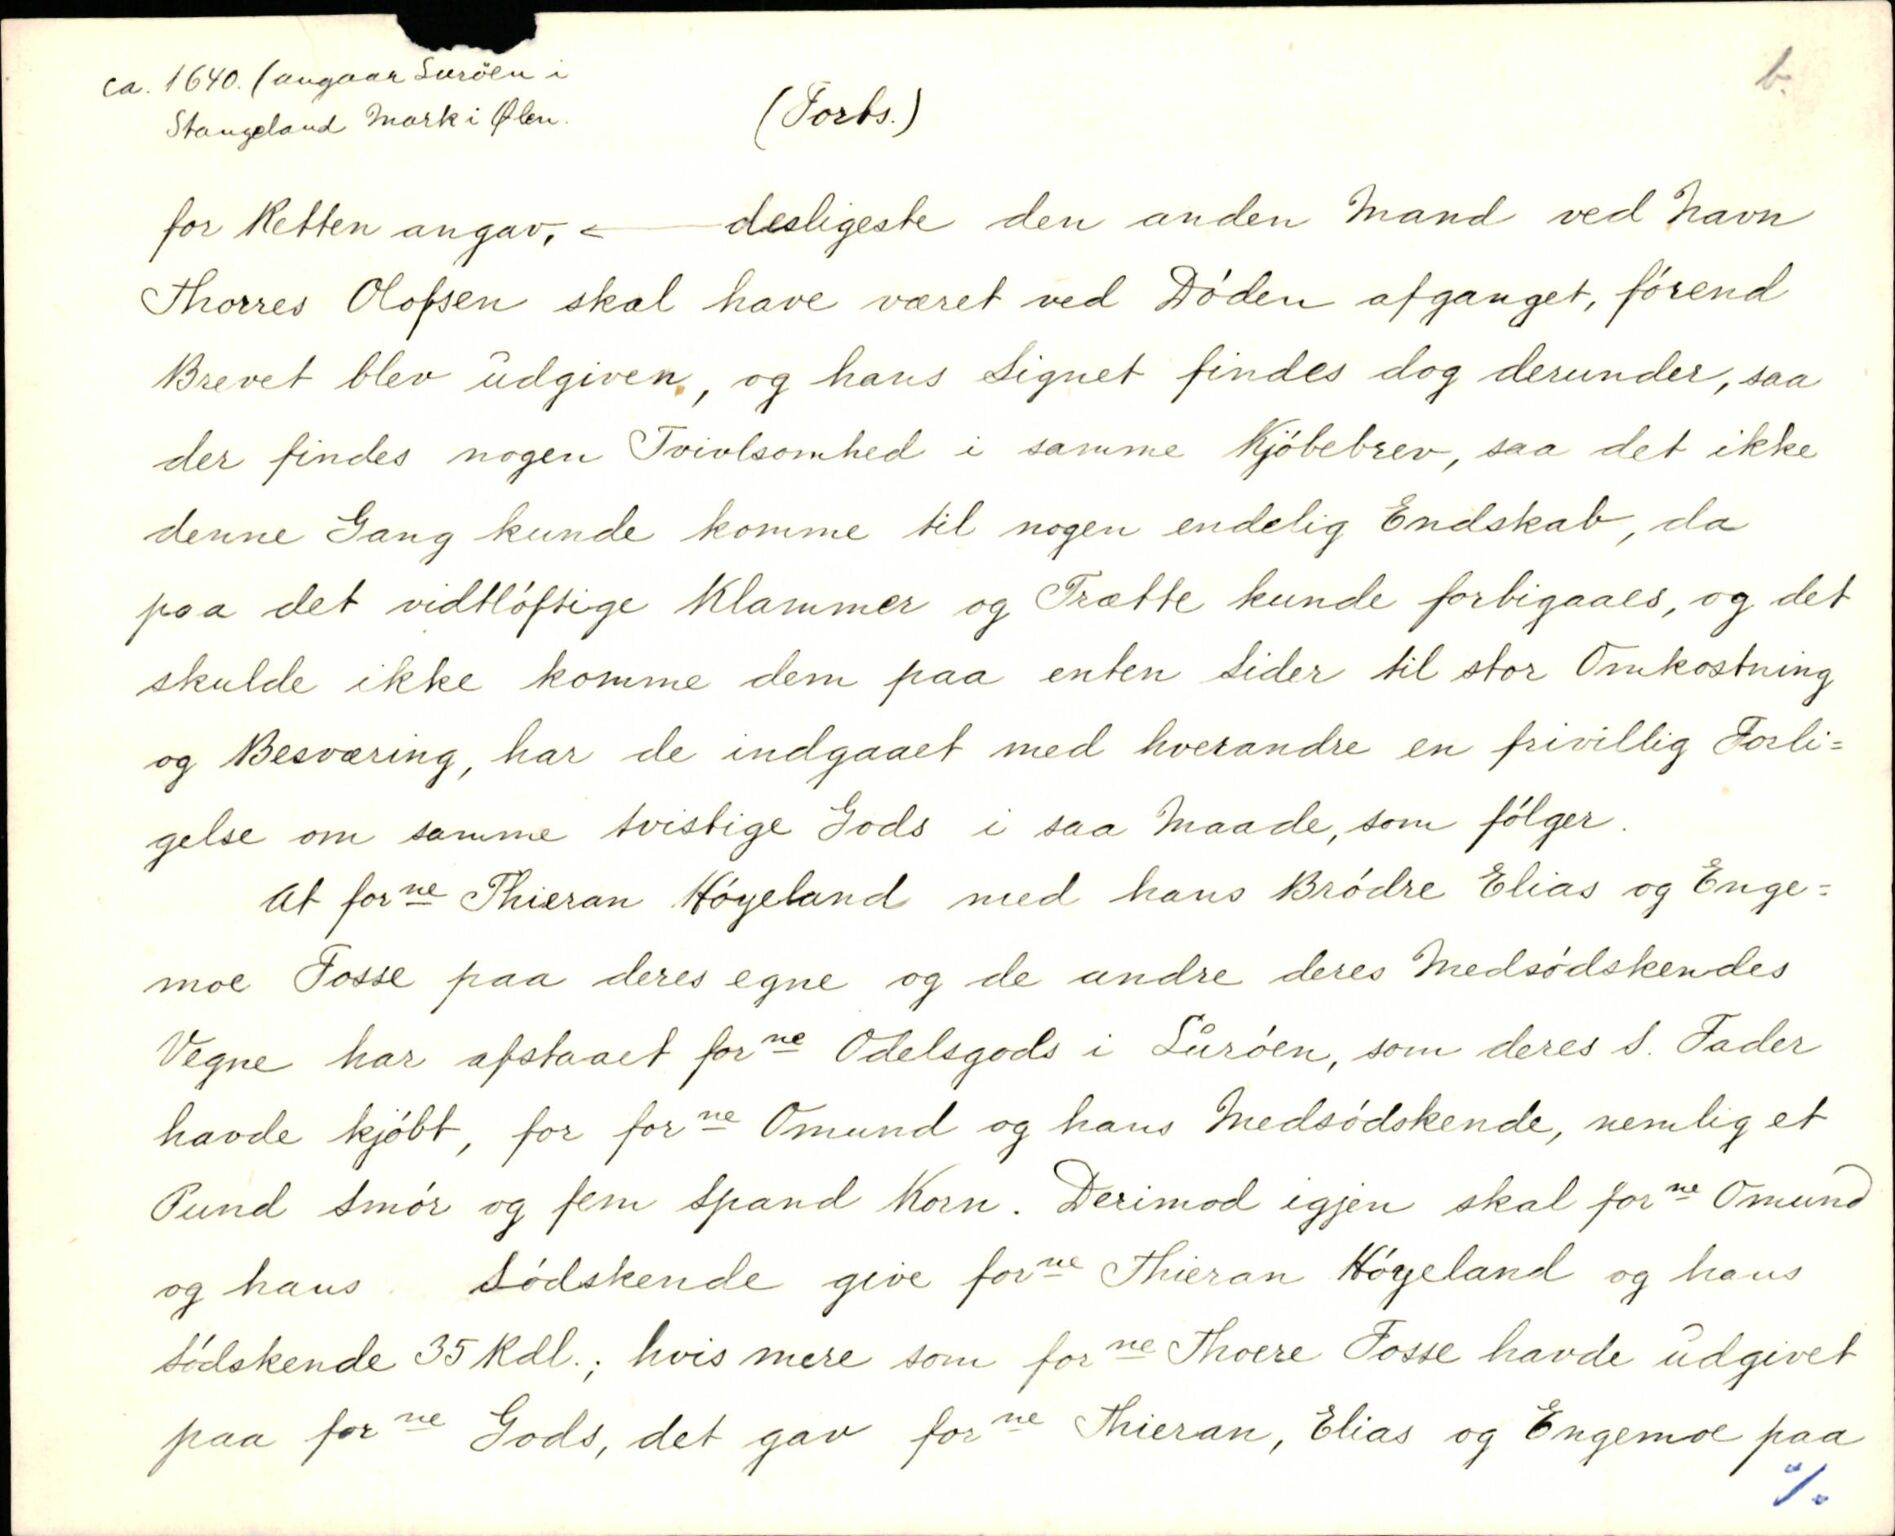 ca. 1640. (angaar Surøen i
Stangeland Mark i Ølen.
(Forts.)
b.
for Retten angav, desligeste den anden Mand ved Navn
Thorres Olofsen skal have været ved Døden afganget, førend
Brevet blev udgiven, og hans Signet findes dog derunder, saa
der findes nogen Tvivlsomhed i samme Kjøbebrev, saa det ikke
denne Gang kunde komme til nogen endelig Endskab, da
paa det vidtløftige Klammer og Trætte kunde forbigaaes, og det
skulde ikke komme dem paa enten Sider til stor Omkostning
og Besværing, har de indgaaet med hverandre en frivillig Forli=
gelse om samme tvistige Gods i saa Maade, som følger.
At forne Thieran Høyeland med hans Brødre Elias og Enge=
moe Fosse paa deres egne og de andre deres Medsødskendes
Vegne har afstaaet forne Odelsgods i Surøen, som deres S. Fader
havde kjøbt, for forne Omund og hans Medsødskende, nemlig et
Pund Smør og fem Spand Korn. Derimod igjen skal forne Omund
og hans Sødskende give forne Thieran Høyeland og hans
Sødskende 35 Rdl.; hvis mere som forne Thoere Fosse havde udgivet
paa forne Gods, det gav forne Thieran, Elias og Engemoe paa
./.